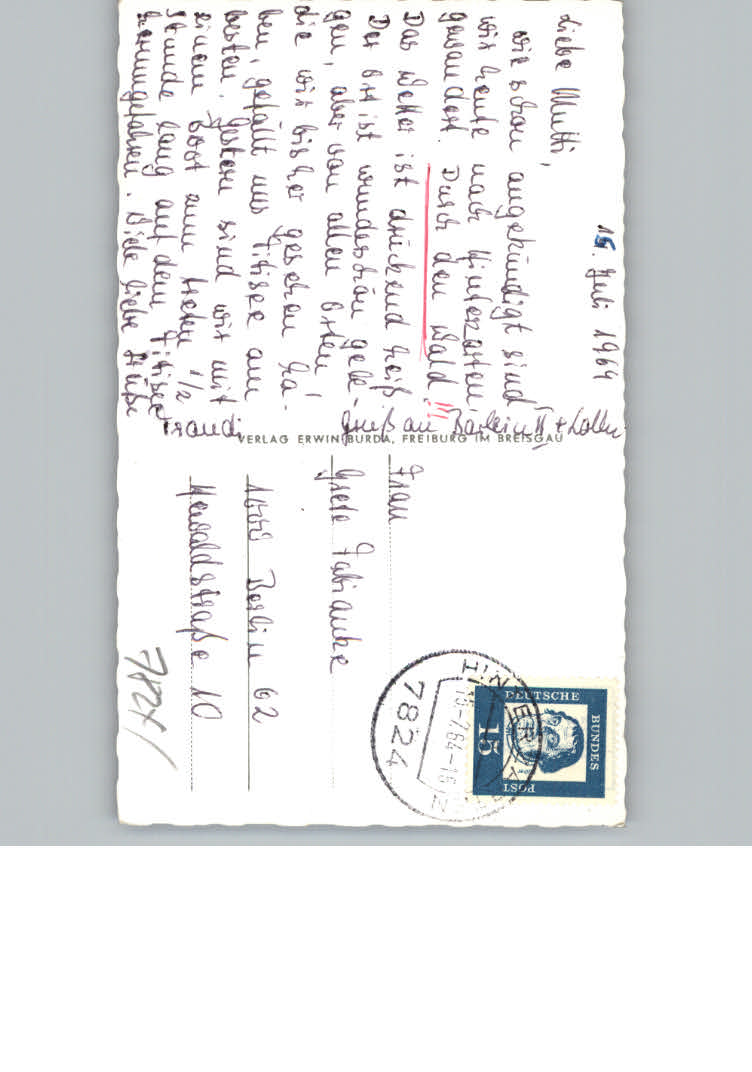 15. Juli 1964
Liebe Mutti,
wie schon angekündigt sind
wir heute nach Hinterzarten
gewandert. Durch den Wald!!!
Das Wetter ist drückend heiß.
Der Ort ist wunderschön gele-
gen, aber von allen Orten,
die wir bisher gesehen ha-
ben, gefällt uns Titisee am
besten. Gestern sind wir mit
einem Boot zum treten 1/2
Stunde lang auf dem Titisee
herumgefahren. Viele liebe Grüße
Traudi
Gruß an Bärlein II + Lollu
VERLAG ERWIN BURDA, FREIBURG IM BREISGAU
Frau
Grete Fabianke
1000 Berlin 62
Hewaldstraße 10
DEUTSCHE
BUNDES
POST
15
HINTERZARTEN
15-7.64-16
7824